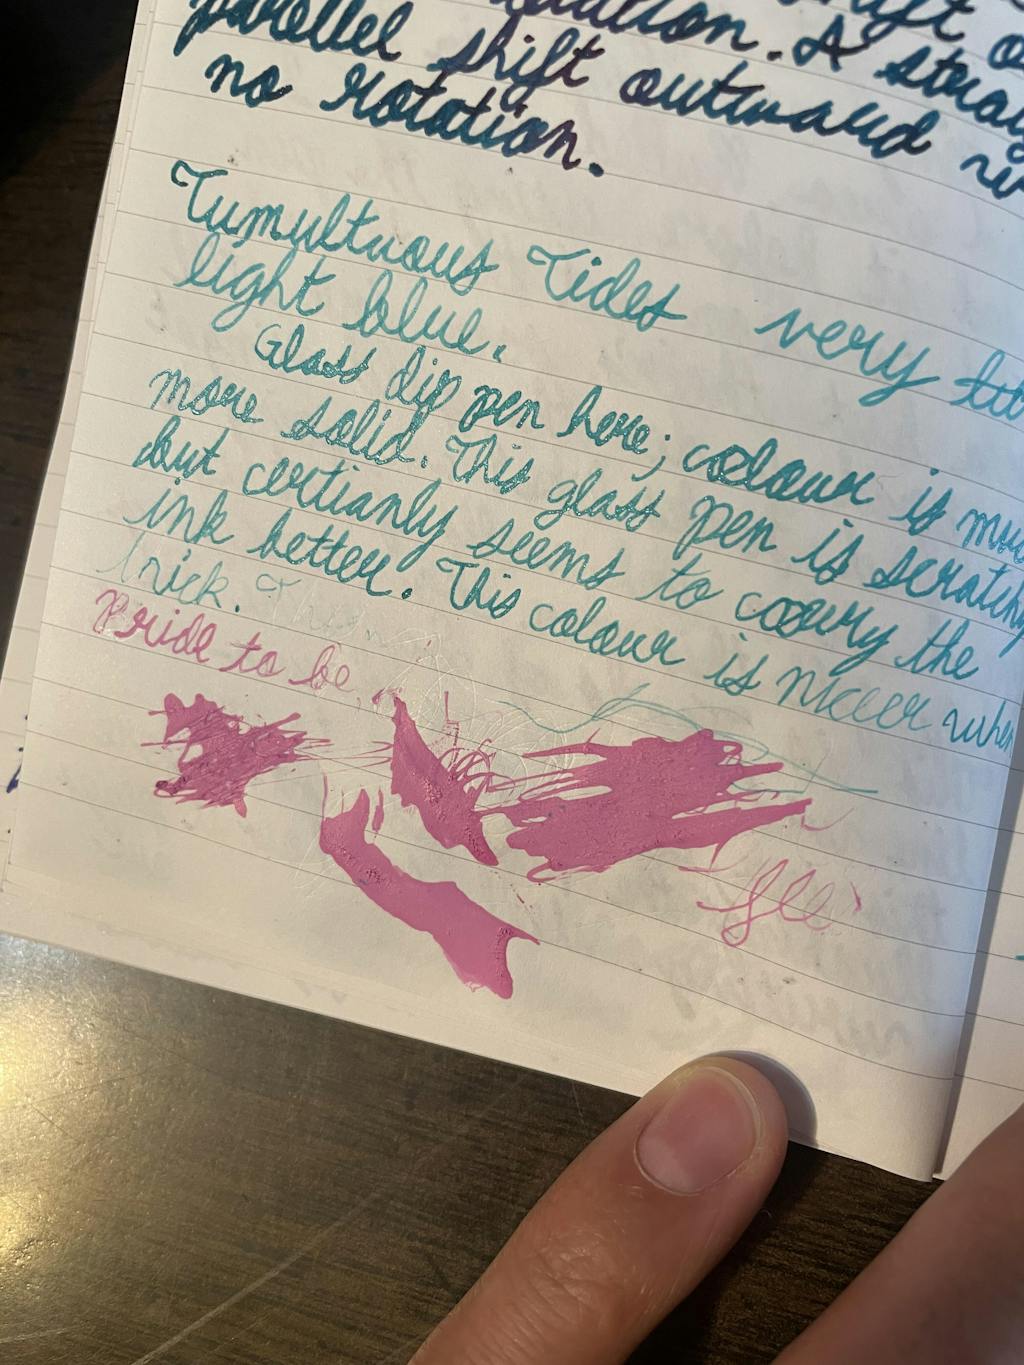 parallel shift outward
no rotation.
Tumultuous Tides very
light blue.
Glass dip pen here; colour is
more solid. This glass pen is scratchy
but certianly seems to carry the
ink better. This colour is niceer when
thick. Then
Pride to be